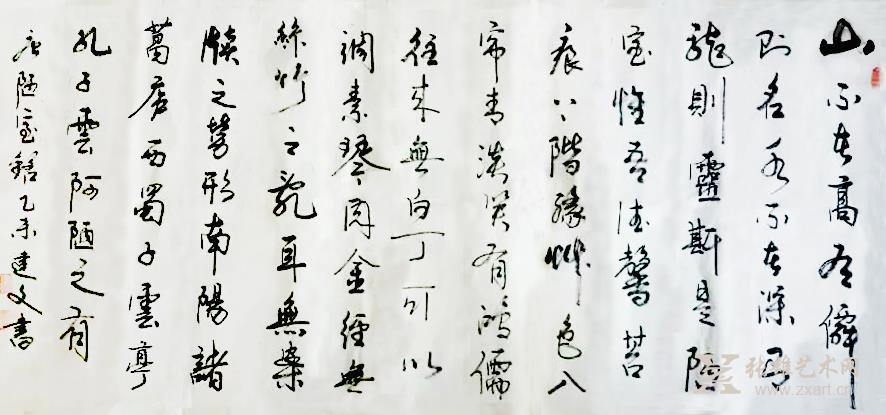 山不在高有僊
則名水不在深有
龍則靈斯是陋
室惟吾德馨苔
痕上階綠草色入
帘青談笑有鴻儒
往來無白丁可以
調素琴閱金經無
絲竹之亂耳無案
牘之勞形南陽諸
葛廬西蜀子雲亭
孔子雲何陋之有
陋室銘乙未建文書
张雄艺术网
www.zxart.cn